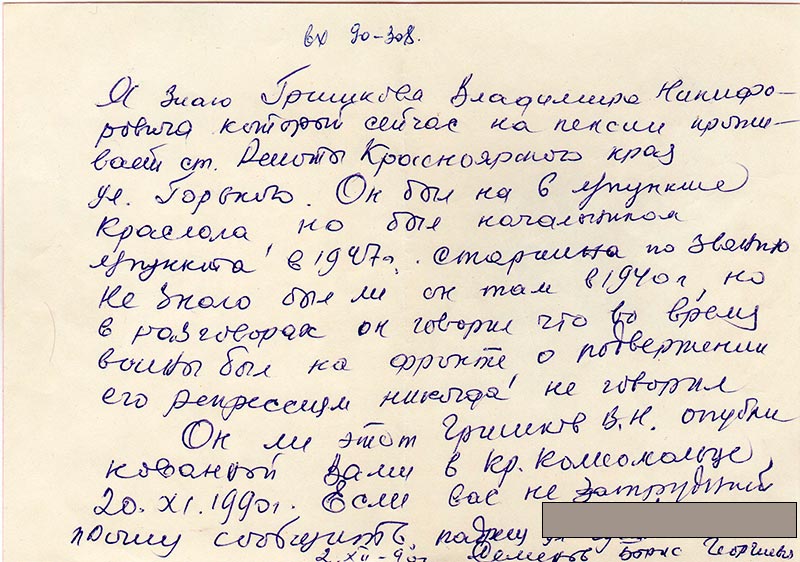 вх 90-308.
Я знаю Гришкова Владимира Никифо-
ровича который сейчас на пенсии прожи-
вает ст. Решоты Красноярского края
ул. Горького. Он был на 8 л/пункте
Краслага но был начальником
л/пункта в 1947г. старшина по званию
Не знаю был ли он там в 1940г, но
в разговорах он говорил что во время
войны был на фронте о подвержении
его репрессиям никогда не говорил
Он ли этот Гришков В.Н. опубли
кованный Вами в Кр. Комсомольце
20.XI.1990г. Если вас не затруднит
прошу сообщить.
2.XII-90г Семенов Борис Георгиевич